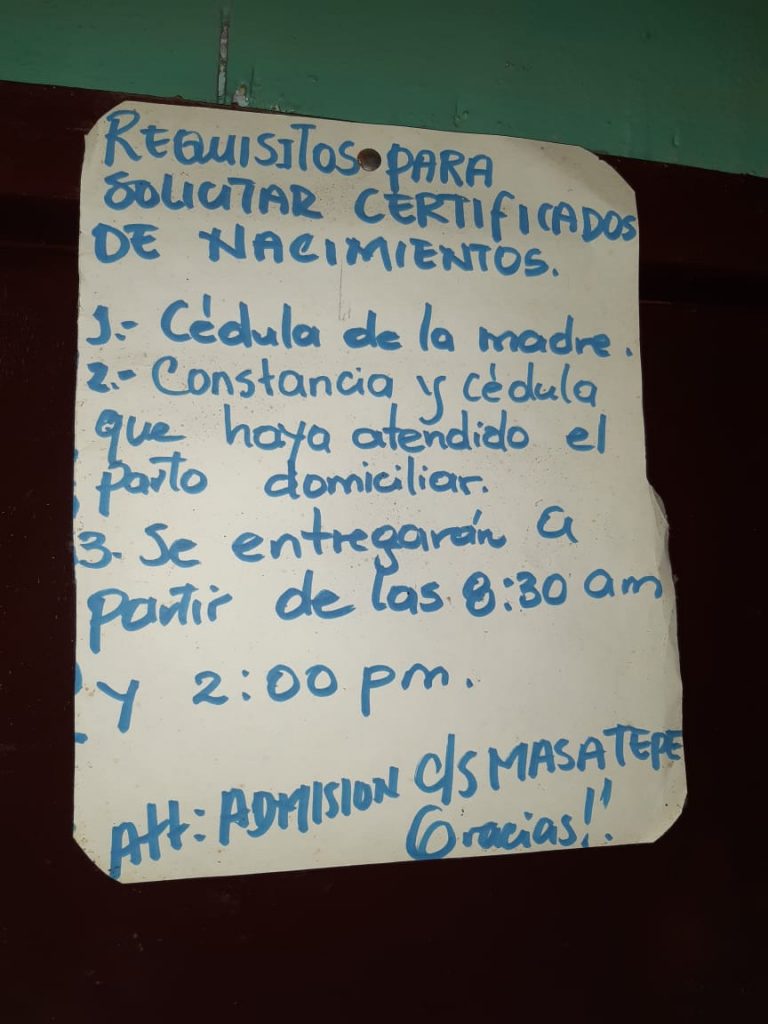 REQUISITOS PARA
SOLICITAR CERTIFICADOS
DE NACIMIENTOS.
1.- Cédula de la madre.
2.- Constancia y cédula
que haya atendido el
parto domiciliar.
3. Se entregarán a
partir de las 8:30 am
y 2:00 pm.
Att: ADMISION C/S MASATEPE
Gracias!!